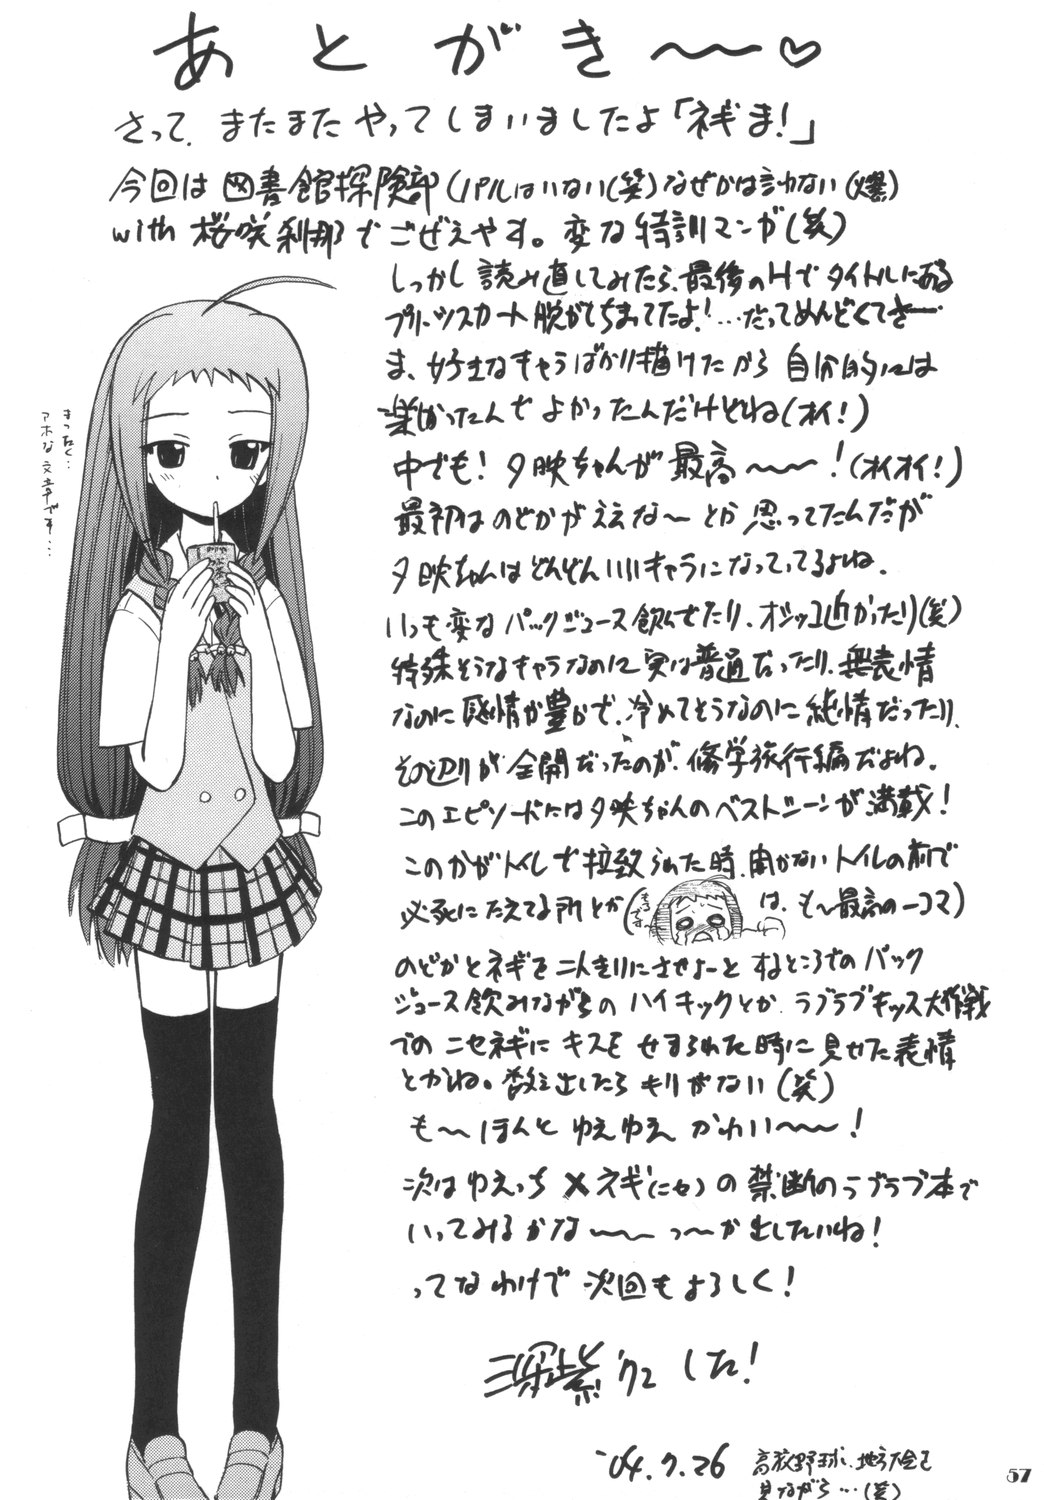 あとがき～～♡
さって、またまたやってしまいましたよ「ネギま!」
今回は図書館探険部(パルはいない(笑)なぜかは言わない(爆)
with 桜咲刹那でごぜえやす。変な特訓マンガ(笑)
しっかし読み直してみたら、最後のHでタイトルにある
プリーツスカート脱がしちまってたよ!…だってめんどくてさー
ま、好きなキャラばかり描けたから自分的には
楽しかったんでよかったんだけどね(オイ!)
中でも!夕映ちゃんが最高～～～!(オイオイ!)
最初はのどかがええな～とか思ってたんだが
夕映ちゃんはどんどんいいキャラになってってるよね。
いつも変なパックジュース飲んでたり、オシッコ近かたり(笑)
特殊そうなキャラなのに実は普通だったり、無表情
なのに感情が豊かで、冷めてそうなのに純情だったり、
その辺りが全開だったのが、修学旅行編だよね。
このエピソードには夕映ちゃんのベストシーンが満載!
このかがトイレで拉致られた時、開かないトイレの前で
必死にたえてる所とか(もるです…は、も～最高の一コマ)
のどかとネギを二人きりにさせよーとするところでのパック
ジュース飲みながらのハイキックとか、ラブラブキッス大作戦
でのニセネギにキスをせまられた時に見せた表情
とかね。数え出したらキリがない(笑)
も～ほんとゆえゆえかわい～～～!
次はゆえっち×ネギ(ニセ)の禁断のラブラブ本で
いってみるかな～～～っ～か出したいね!
ってなわけで次回もよろしく!
深紫でした!
'04.7.26
高校野球、地方大会を
見ながら…(笑)
まったく…
アホな文章です…
57